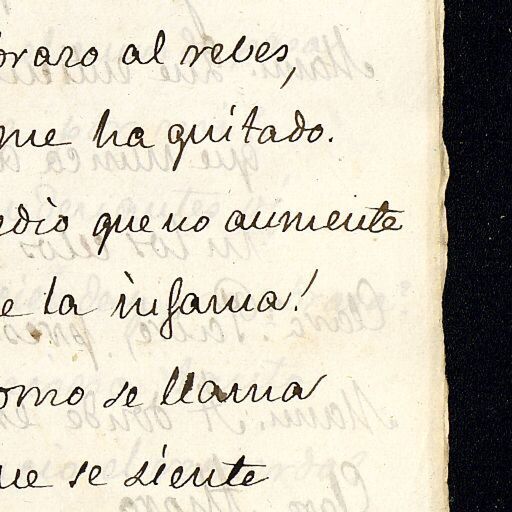 brazo al reves,
me ha quitado.
edio que no aumente
e la infamia!
omo se llama
ue se siente